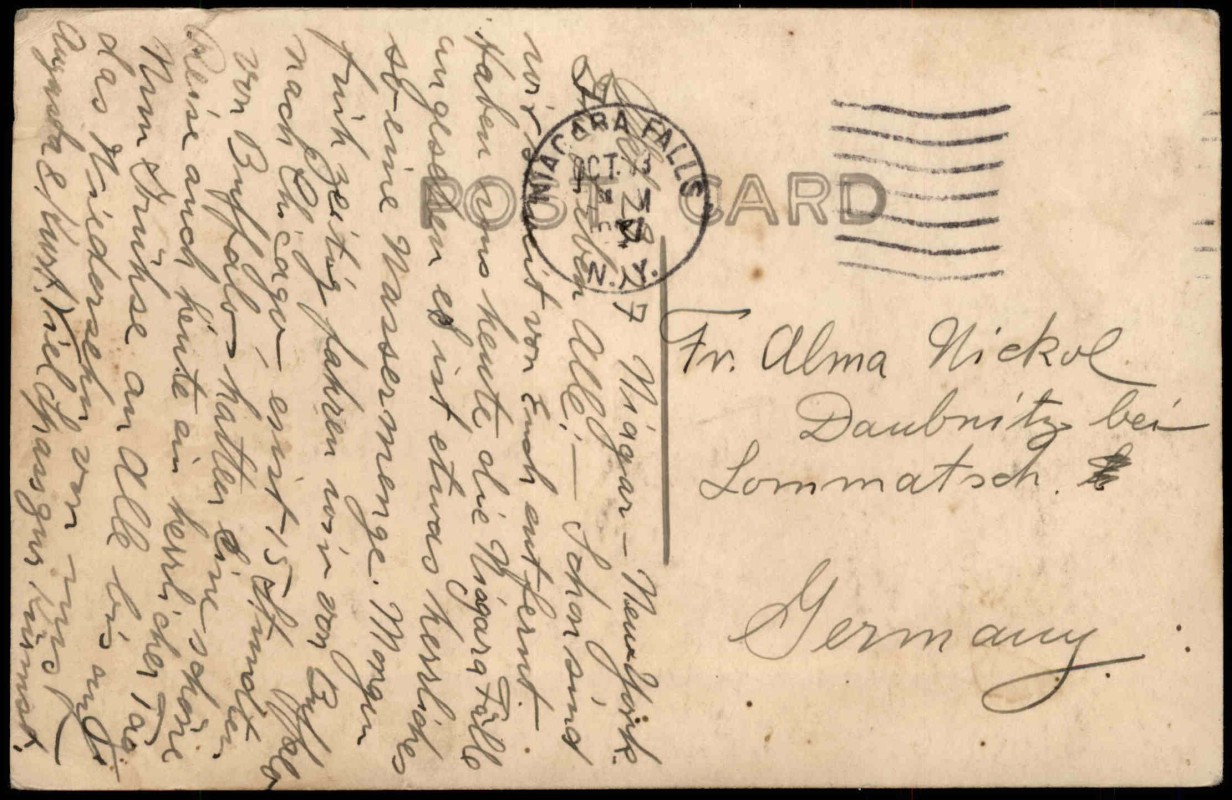 POST CARD
NIAGARA FALLS
OCT. 3
N.Y.
Niagar – NewYork.
Lieben Alle! – Schon sind
wir so weit von Euch entfernt.
Haben uns heute die Niagara Fälle
angesehen es ist etwas herrliches
so eine Wassermenge. Morgen
früh zeitig fahren wir von Buffalo
nach Chicago es ist 15 Stunden
von Buffalo hatten eine schöne
Reise auch heute ein herrlicher Tag.
Nun Grüsse an Alle bis auf
das Niedersehn von uns
August & Kurt. Viel aus Heimat.
Fr. Alma Nickol
Daubnitz bei
Lommatsch.
Germany